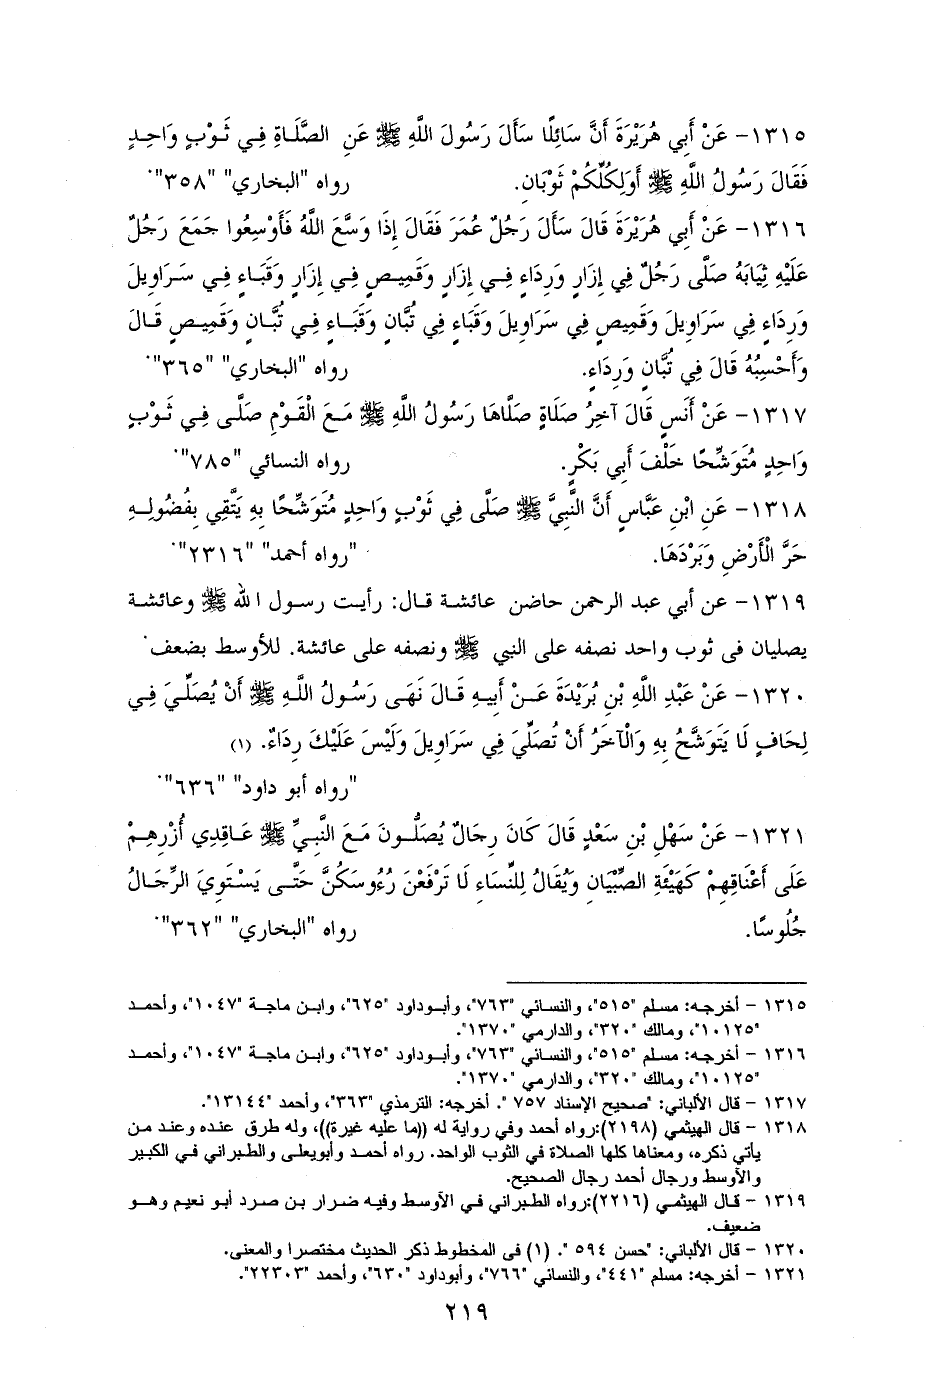 ١٣١٥- عَنْ أَبِي هُرَيْرَةَ أَنَّ سَائِلًا سَأَلَ رَسُولَ اللَّهِ ﷺ عَنِ الصَّلَاةِ فِي ثَوْبٍ وَاحِدٍ
فَقَالَ رَسُولُ اللَّهِ ﷺ أَوَلِكُلِّكُمْ ثَوْبَانِ. رواه "البخاري" "٣٥٨".
١٣١٦- عَنْ أَبِي هُرَيْرَةَ قَالَ سَأَلَ رَجُلٌ عُمَرَ فَقَالَ إِذَا وَسَّعَ اللَّهُ فَأَوْسِعُوا جَمَعَ رَجُلٌ
عَلَيْهِ ثِيَابَهُ صَلَّى رَجُلٌ فِي إِزَارٍ وَرِدَاءٍ فِي إِزَارٍ وَقَمِيصٍ فِي إِزَارٍ وَقَبَاءٍ فِي سَرَاوِيلَ
وَرِدَاءٍ فِي سَرَاوِيلَ وَقَمِيصٍ فِي سَرَاوِيلَ وَقَبَاءٍ فِي تُبَّانٍ وَقَبَاءٍ فِي تُبَّانٍ وَقَمِيصٍ قَالَ
وَأَحْسِبُهُ قَالَ فِي تُبَّانٍ وَرِدَاءٍ. رواه "البخاري" "٣٦٥".
١٣١٧- عَنْ أَنَسٍ قَالَ آخِرُ صَلَاةٍ صَلَّاهَا رَسُولُ اللَّهِ ﷺ مَعَ الْقَوْمِ صَلَّى فِي ثَوْبٍ
وَاحِدٍ مُتَوَشِّحًا خَلْفَ أَبِي بَكْرٍ. رواه النسائي "٧٨٥".
١٣١٨- عَنِ ابْنِ عَبَّاسٍ أَنَّ النَّبِيَّ ﷺ صَلَّى فِي ثَوْبٍ وَاحِدٍ مُتَوَشِّحًا بِهِ يَتَّقِي بِفُضُولِهِ
حَرَّ الْأَرْضِ وَبَرْدَهَا. "رواه أحمد" "٢٣١٦".
١٣١٩- عن أبي عبد الرحمن حاضن عائشة قال: رأيت رسول الله ﷺ وعائشة
يصليان فى ثوب واحد نصفه على النبي ﷺ ونصفه على عائشة. للأوسط بضعف.
١٣٢٠- عَنْ عَبْدِ اللَّهِ بْنِ بُرَيْدَةَ عَنْ أَبِيهِ قَالَ نَهَى رَسُولُ اللَّهِ ﷺ أَنْ يُصَلِّيَ فِي
لِحَافٍ لَا يَتَوَشَّحُ بِهِ وَالْآخَرُ أَنْ تُصَلِّيَ فِي سَرَاوِيلَ وَلَيْسَ عَلَيْكَ رِدَاءٌ. (١)
"رواه أبو داود" "٦٣٦".
١٣٢١- عَنْ سَهْلِ بْنِ سَعْدٍ قَالَ كَانَ رِجَالٌ يُصَلُّونَ مَعَ النَّبِيِّ ﷺ عَاقِدِي أُزْرِهِمْ
عَلَى أَعْنَاقِهِمْ كَهَيْئَةِ الصِّبْيَانِ وَيُقَالُ لِلنِّسَاءِ لَا تَرْفَعْنَ رُءُوسَكُنَّ حَتَّى يَسْتَوِيَ الرِّجَالُ
جُلُوسًا. رواه "البخاري" "٣٦٢".
١٣١٥ - أخرجه: مسلم "٥١٥"، والنسائي "٧٦٣"، وأبوداود "٦٢٥"، وابن ماجة "١٠٤٧"، وأحمد
"١٠١٢٥"، ومالك "٣٢٠"، والدارمي "١٣٧٠".
١٣١٦ - أخرجه: مسلم "٥١٥"، والنسائي "٧٦٣"، وأبوداود "٦٢٥"، وابن ماجة "١٠٤٧"، وأحمد
"١٠١٢٥"، ومالك "٣٢٠"، والدارمي "١٣٧٠".
١٣١٧ - قال الألباني: "صحيح الإسناد ٧٥٧ ". أخرجه: الترمذي "٣٦٣"، وأحمد "١٣١٤٤".
١٣١٨ - قال الهيثمي (٢١٩٨):رواه أحمد وفي رواية له ((ما عليه غيرة))، وله طرق عنده وعند من
يأتي ذكره، ومعناها كلها الصلاة في الثوب الواحد. رواه أحمد وأبويعلى والطبراني في الكبير
والأوسط ورجال أحمد رجال الصحيح.
١٣١٩ - قال الهيثمي (٢٢١٦):رواه الطبراني في الأوسط وفيه ضرار بن صرد أبو نعيم وهو
ضعيف.
١٣٢٠ - قال الألباني: "حسن ٥٩٤ ". (١) فى المخطوط ذكر الحديث مختصرا والمعنى.
١٣٢١ - أخرجه: مسلم "٤٤١"، والنسائي "٧٦٦"، وأبوداود "٦٣٠"، وأحمد "٢٢٣٠٣".
٢١٩